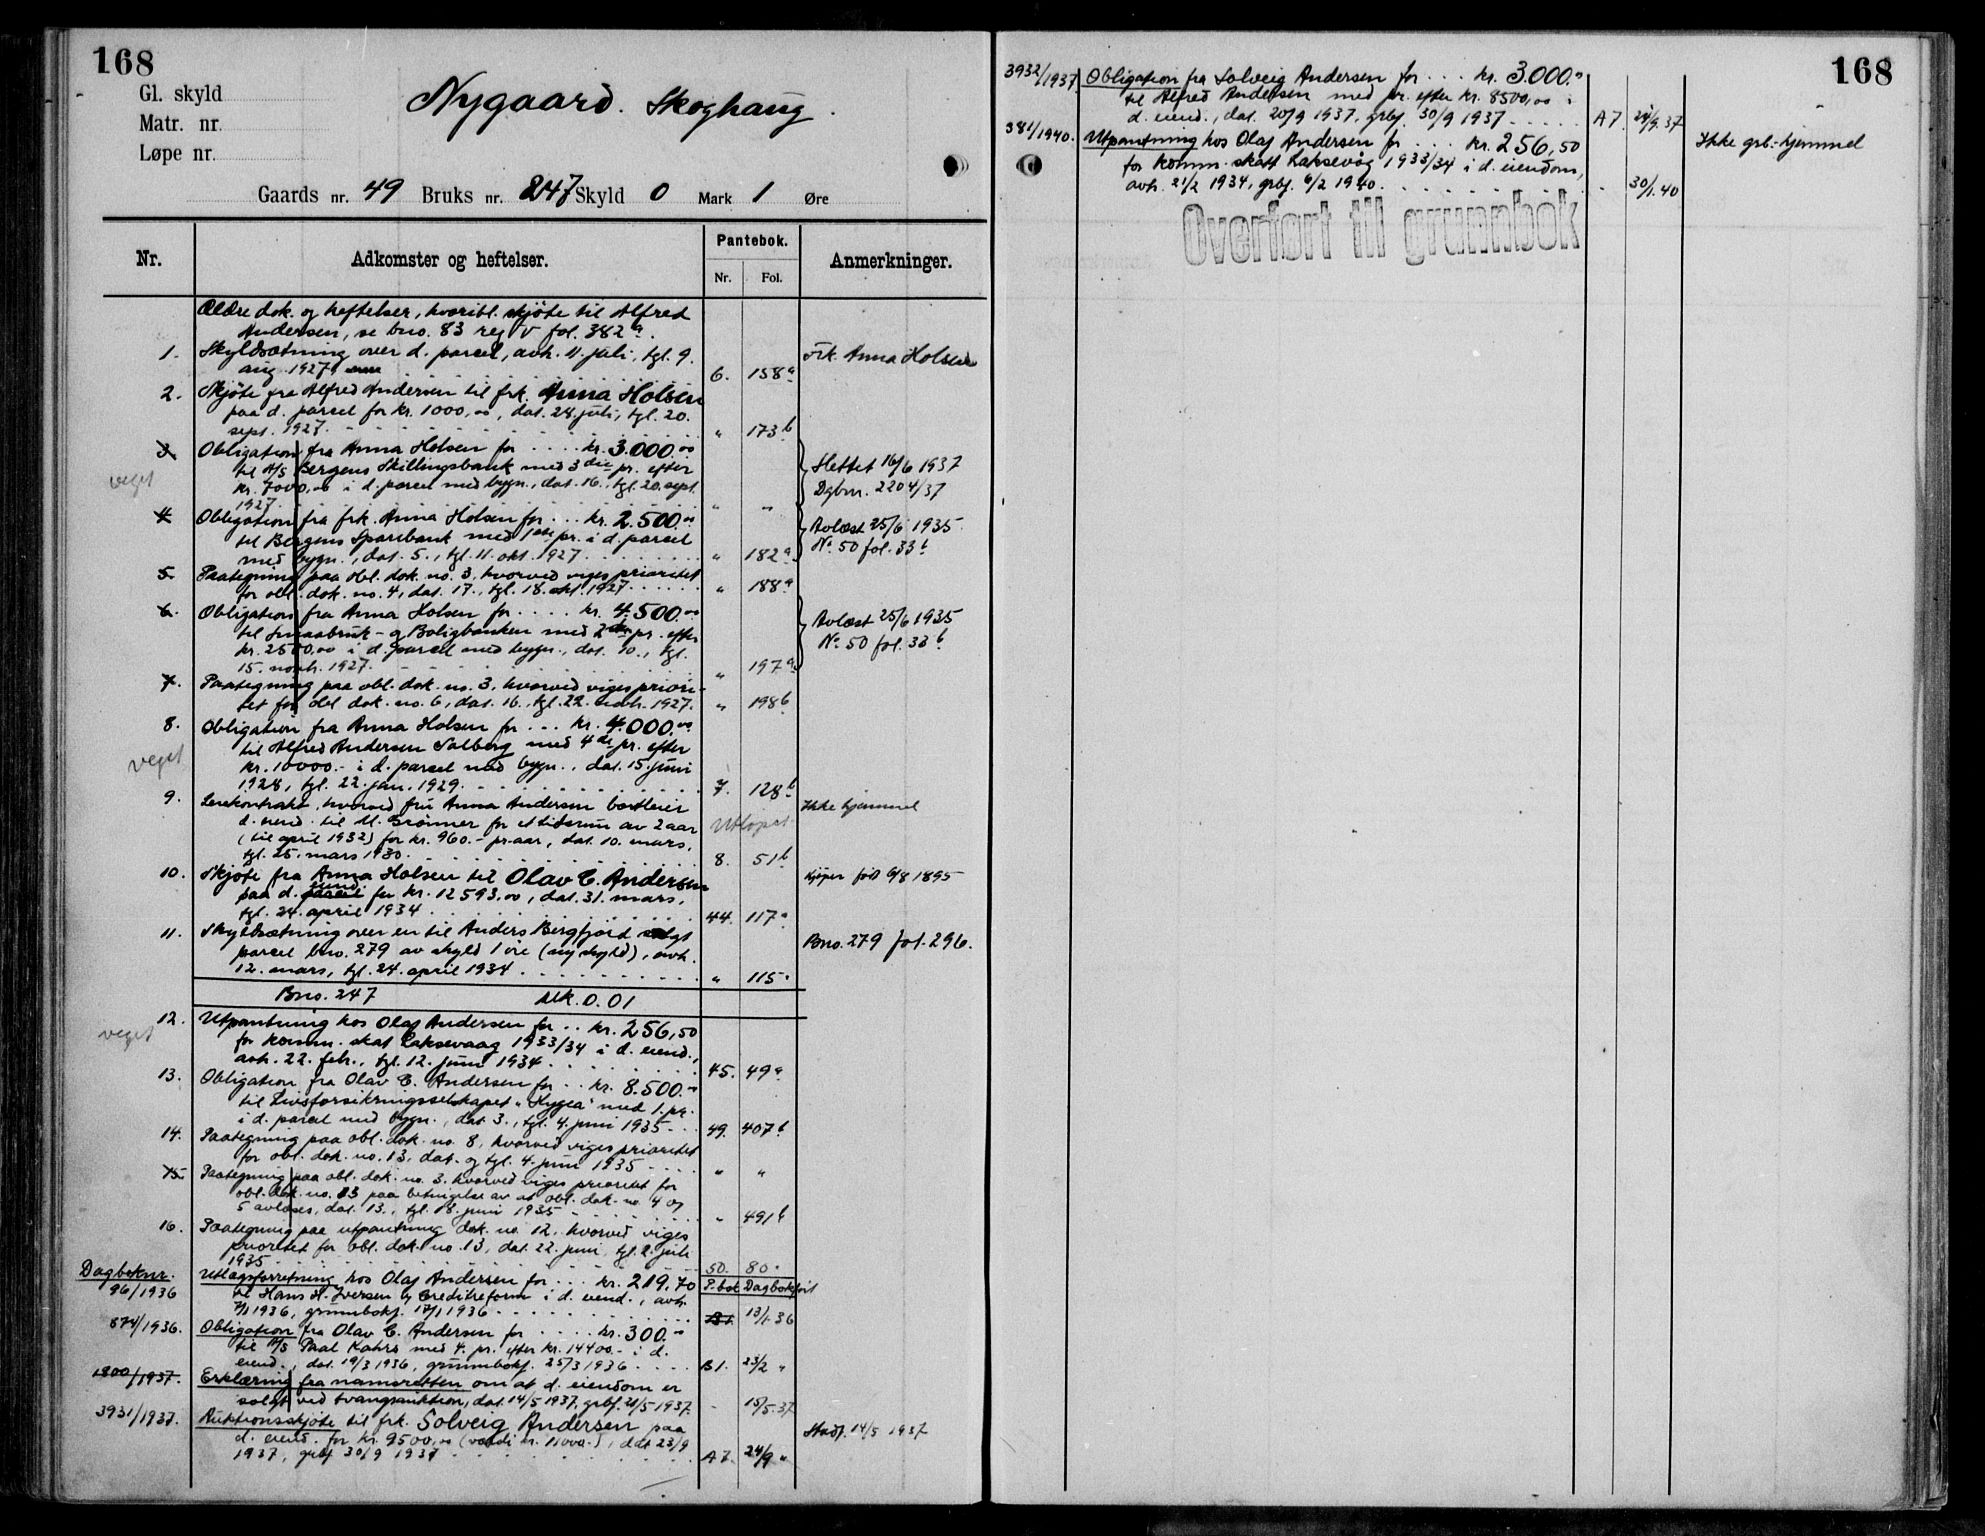 168
Gl. skyld
Matr. nr.
Løpe nr.
Nygaard. Skoghaug.
Gaards nr. 49 Bruks nr. 247 Skyld 0 Mark 1 Øre
Nr.
Adkomster og heftelser.
Pantebok.
Nr. Fol.
Anmerkninger.
Ældre dok. og heftelser, hvoribl. skjöte til Alfred
Andersen, se bno. 83 reg V fol. 382 a.
1. Skyldsætning over d. parcel, avh. 11. juli, tgl. 9.
aug. 1927 6. 158 a
Frk. Anna Holsen
2. Skjöte fra Alfred Andersen til frk. Anna Holsen
paa d. parcel for kr. 1000,00, dat. 28. juli, tgl. 20.
sept. 1927. " 173 b
3. Obligation fra Anna Holsen for .... kr. 3.000.00
til A/S Bergens Skillingsbank med 3die pr. efter
veget
kr. 7000,00 i d. parcel med bygn., dat. 16., tgl. 20. sept.
1927 " "
Slettet 16/6 1937
Dgbnr. 2204/37
4. Obligation fra frk. Anna Holsen for ... kr. 2.500.00
til Bergens Sparebank med 1ste pr. i d. parcel
med bygn., dat. 5., tgl. 11. okt. 1927 " 182 a
Avlæst 25/6 1935
No. 50 fol. 33 b
5. Paategning paa obl. dok. no. 3, hvorved viges prioritet
for obl. dok. no. 4, dat. 17., tgl. 18. okt. 1927 " 188 a
6. Obligation fra Anna Holsen for .... kr. 4.500.00
til Smaabruk- og Boligbanken med 2den pr. efter
kr. 2500,00 i d. parcel med bygn., dat. 10., tgl.
15. novbr. 1927. " 197 a
Avlæst 25/6 1935
No. 50 fol. 33 b
7. Paategning paa obl. dok. no. 3, hvorved viges priori-
tet for obl. dok. no. 6, dat. 16., tgl. 22. novbr. 1927. " 198 b
8. Obligation fra Anna Holsen for ... kr. 4.000.00
til Alfred Andersen Solberg med 4de pr. efter
veget
kr. 10000.- i d. parcel med bygn., dat. 15. juni
1928, tgl. 22. jan. 1929. 7. 128 b
9. Leiekontrakt, hvorved fru Anna Andersen bortleier
Ikke hjemmel
d. eiend. til M. Grönner for et tidsrum av 2 aar
Utlöpet
(til april 1932) for kr. 960.- pr. aar, dat. 10. mars,
tgl. 25. mars 1930. 8. 51 b
10. Skjöte fra Anna Holsen til Olav C. Andersen
Kjöper född 6/8 1895
paa d. parcel eiend. for kr. 12593.00, dat. 31. mars,
tgl. 24. april 1934 44. 117 a
11. Skyldsætning over en til Anders Bergfjord solgt
parcel bno. 279 av skyld 1 öre (ny skyld), avh.
Bno. 279 fol. 296.
12. mars, tgl. 24. april 1934 " 115 a
Bno. 247 Mk. 0.01
12. Utpantning hos Olaf Andersen for .. kr. 256,50
veget
for komm. skat Laksevaag 1933/34 i d. eiend.,
avh. 22. febr., tgl. 12. juni 1934 45. 49 a
13. Obligation fra Olav C. Andersen for .. kr. 8.500.00
til Livsforsikringsselskapet "Hygea" med 1. pr.
i d. parcel med bygn., dat. 3., tgl. 4. juni 1935 49. 407 b
14. Paategning paa obl. dok. no. 8, hvorved viges prioritet
for obl. dok. no. 13, dat. og tgl. 4. juni 1935 " "
15. Paategning paa obl. dok. no. 3, hvorved viges prioritet for
obl. dok. no. 13 paa betingelse av at obl. dok. no. 4 og
5 avlæses, dat. 13., tgl. 18. juni 1935 " 491 b
16. Paategning paa utpantning dok. no. 12, hvorved viges
prioritet for obl. dok. no. 13, dat. 22. juni, tgl. 2. juli
1935 50. 80 a
Dagboknr. P.bok Dagbokfört
96/1936 Utlægsforretning hos Olaf Andersen for ... kr. 219,70
til Hans H. Iversen og Creditreform i d. eiend., avh.
7/1 1936, grunnbokf. 17/1 1936 B1. 13/1.36
874/1936. Obligation fra Olav C. Andersen for .... kr. 300.00
til A/S Paal Kahrs med 4. pr. efter kr. 14400.- i d.
eiend., dat. 19/3 1936, grunnbokf. 25/3 1936 B1. 23/2 "
1800/1937. Erklæring fra namsretten om at d. eiendom er
solgt ved tvangsauktion, dat. 14/5 1937, grbf. 21/5 1937. - 15/5.37
3931/1937. Auktionsskjöte til frk. Solveig Andersen paa
Stadf. 14/5 1937
d. eiend. for kr. 9500,00 (verdi kr. 11000.-), dat. 23/9
1937, grbf. 30/9 1937 A7. 24/9 "
168
3932/1937. Obligation fra Solveig Andersen for ... kr. 3.000."
til Alfred Andersen med pr. efter kr. 8500,00 i
d. eiend., dat. 20/9 1937, grbf. 30/9 1937 A7. 24/9.37
381/1940. Utpantning hos Olaf Andersen for ... kr. 256,50
Ikke grb.-hjemmel
for komm. skatt Laksevåg 1933/34 i d. eiendom,
avh. 21/2 1934, grbf. 6/2 1940. - 30/1.40
Overført til grunnbok